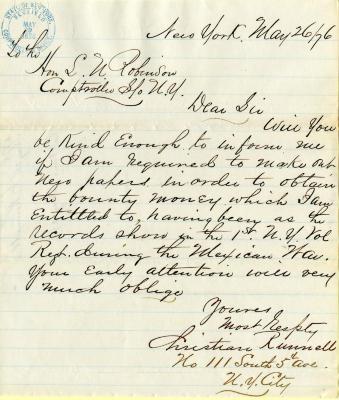 New York. May 26/76
To the
Hon L. N. Robinson
Comptroller S/o N.Y.
Dear Sir
Will You
be Kind Enough to inform me
if I am required to make out
New papers in order to obtain
the bounty money which I am
Entittled to, having been as the
records show in the 1st N.Y Vol
Regt. during the Mexican War.
Your Early attention will very
much oblige
Yours
Most Respty
Christian
No 111 South 5th ave.
N.Y. City
STATE OF NEW YORK
RECEIVED
MAY